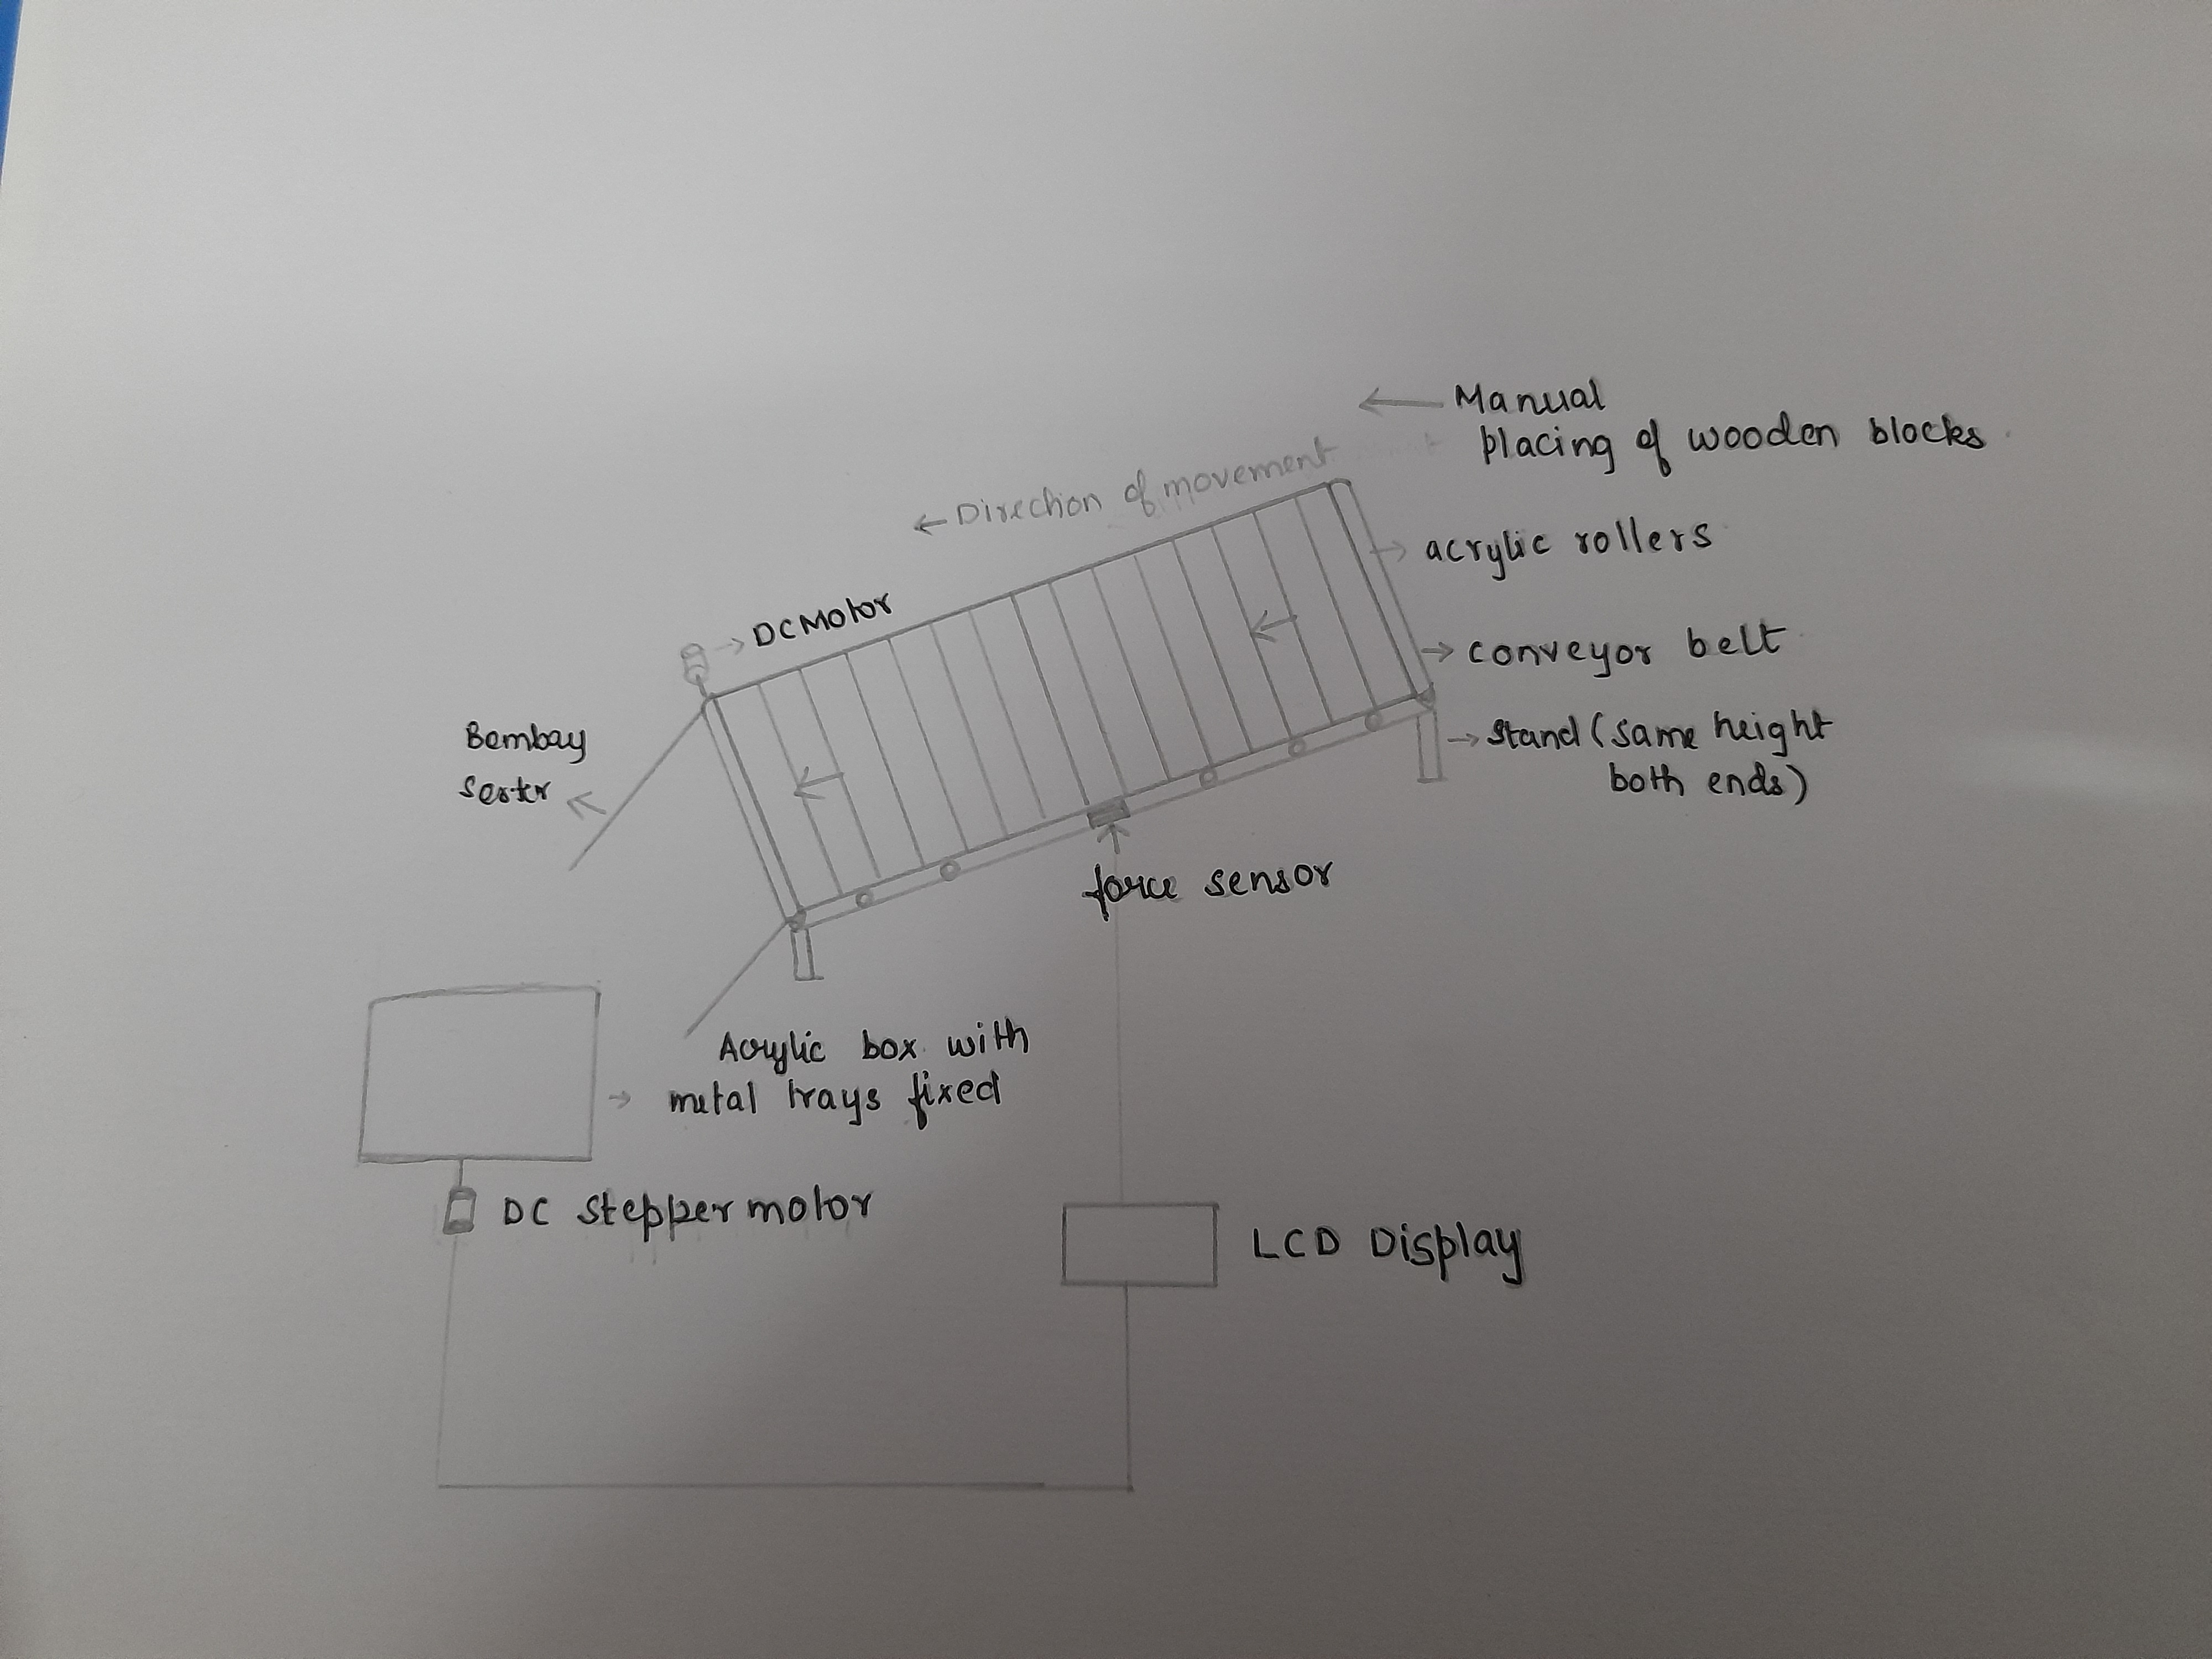 Manual
placing of wooden blocks
← Direction of movement
acrylic rollers
DC Motor
conveyor belt
Stand (same height
both ends)
Bombay
force sensor
Acrylic box with
metal trays fixed
DC stepper motor
LCD Display